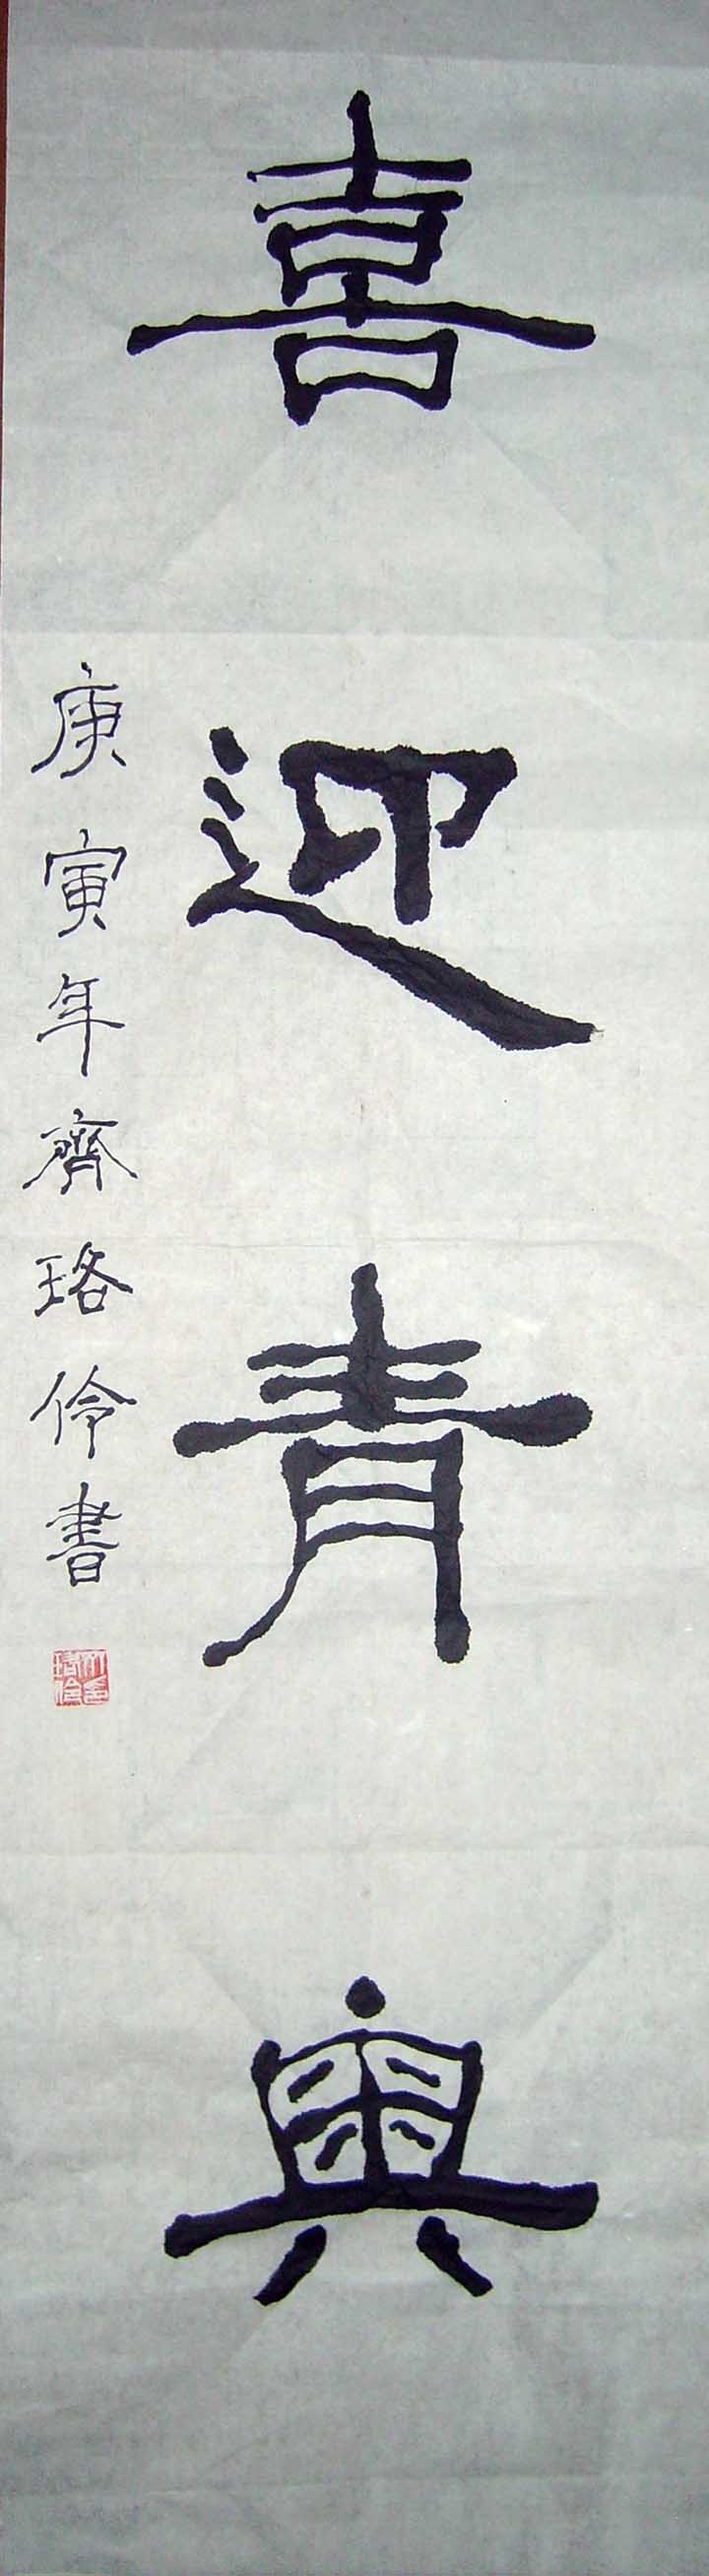 喜迎青奥
庚寅年齊珞伶書